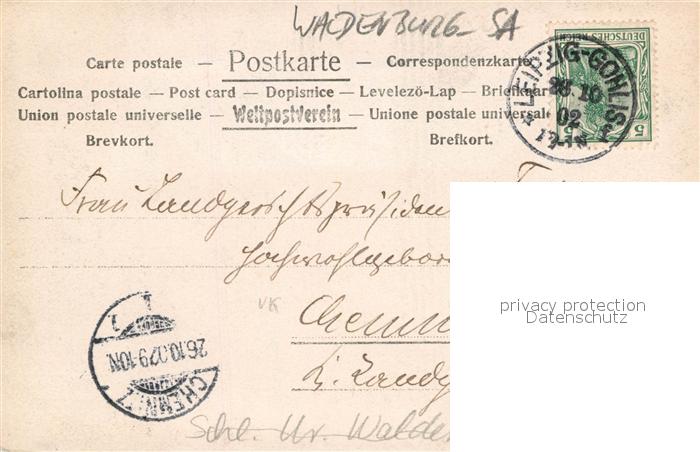 WALDENBURG SA
Carte postale — Postkarte — Correspondenzkarte
Cartolina postale — Post card — Dopisnice — Levelező-Lap — Briefkaar
Union postale universelle — Weltpostverein — Unione postale universal
Brevkort. Brefkort.
DEUTSCHES REICH
5 5
LEIPZIG-GOHLIS
10
02
Frau Landgerichtspräsiden
Hochwohlgebor
VK
Chemn
K. Landg
26.10.02 9-10N.
CHEMNITZ
Schl. Ur. Walde
privacy protection
Datenschutz